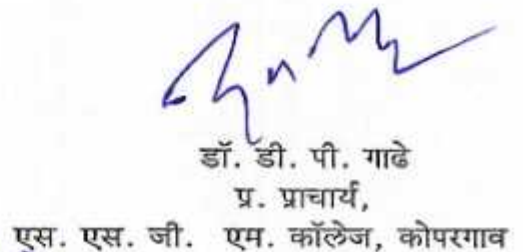 डॉ. डी. पी. गाढे
प्र. प्राचार्य,
एस. एस. जी. एम. कॉलेज, कोपरगाव